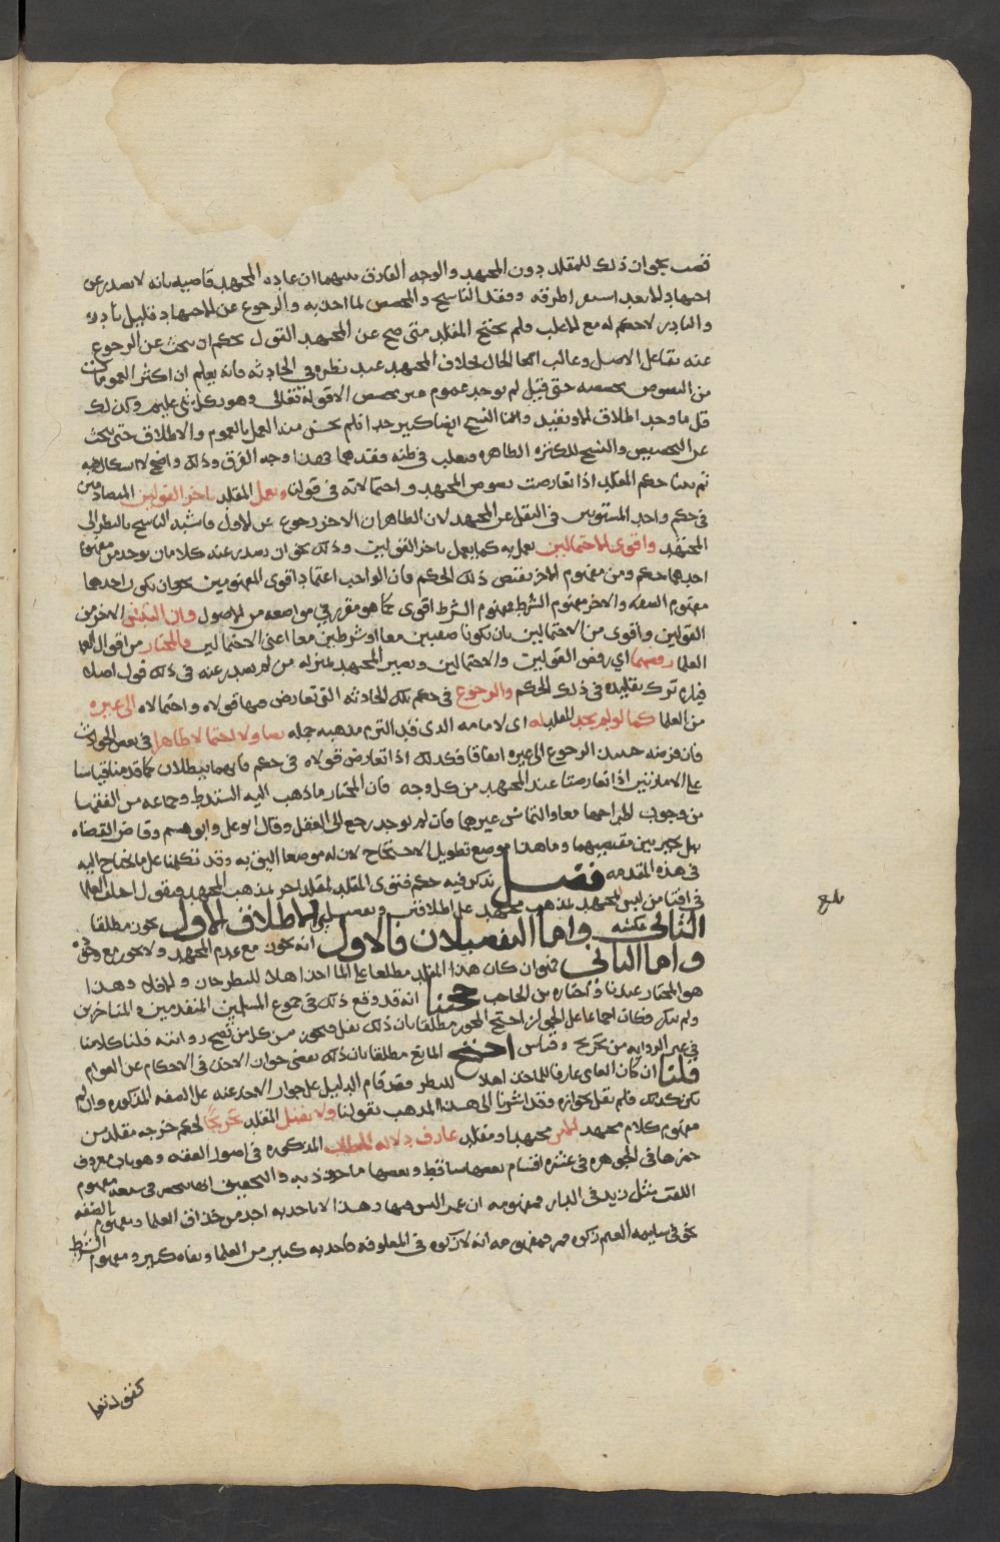 قضت بجواز ذلك للمقلد دون المجتهد والوجه الفارق بينهما ان عادة المجتهد قاضية بانه لا يصدر عن
اجتهاد الا بعد استيفا طرقه وفقد الناسخ والمخصص لما اخذ به والرجوع عن الاجتهاد قليل نادر
والنادر لا حكم له مع الاغلب فلم يحتج المقلد متى صح عن المجتهد القول بحكم ان يبحث عن الرجوع
عنه بقاعلى الاصل وغالب الحال بخلاف المجتهد عند نظره في الحادثة فانه يعلم ان اكثر العمومات
من النصوص مخصصه حتى قيل لم يوجد عموم غير مخصص الا قوله تعالى وهو بكل شي عليم وكذلك
قل ما وجد اطلاق الا وتقييد وهكذا النسخ ايضا كثير جدا فلم يحسن منه العمل بالعموم والاطلاق حتى يبحث
عن التخصيص والنسخ للكثرة الظاهره ويغلب في ظنه فقدهما فهذا وجه الفرق وذلك واضح لا اشكال فيه
ثم بينا حكم المقلد اذا تعارضت نصوص المجتهد واحتمالاته في قولنا ويعمل المقلد باخر القولين المتضادين
في حكم واحد المستويين في النقل عن المجتهد لان الظاهر ان الاخر رجوع عن الاول فاشبه الناسخ بالنظر الى
المجتهد واقوى الاحتمالين يعمل به كما يعمل باخر القولين وذلك نحو ان يصدر عنه كلامان يوجد من مفهوم
احدهما حكم ومن مفهوم الاخر نقيض ذلك الحكم فان الواجب اعتماد اقوى المفهومين نحو ان يكون احدهما
مفهوم الصفه والاخر مفهوم الشرط فمفهوم الشرط اقوى كما هو مقرر في مواضعه من الاصول وان التبس الاخر من
القولين واقوى من الاحتمالين بان يكونا صفتين معا او شرطين معا اعني الاحتمالين فالمختار من اقوال
العلما رفضهما اي رفض القولين والاحتمالين ويصير المجتهد بمنزله من لم يصدر عنه في ذلك قول اصلا
فيلزم ترك تقليده في ذلك الحكم والرجوع في حكم تلك الحادثه التي تعارض فيها قولاه واحتمالاه الى غيره
من العلما كما لو لم يجد المقلد له اي لامامه الذي قد التزم مذهبه جمله نصا ولا احتمالا ظاهرا في بعض الحوادث
فان فرضه حينئذ الرجوع الى غيره اتفاقا فكذلك اذا تعارض قولاه في حكم فانهما يبطلان كما قدمنا قياسا
على الامارتين اذا تعارضتا عند المجتهد من كل وجه فان المختار ما ذهب اليه السيد ط وجماعه من الفقها
من وجوب اطراحهما معا والتماس غيرهما فان لم يوجد رجع الى العقل وقال ابو علي وابو هاشم وقاضي القضاه
بل يخير بين مقتضييهما وما هذا موضع تطويل الاحتجاج لان له موضعا اليق به وقد تكلمنا على ما يحتاج اليه
في هذه المقدمه فصل نذكر فيه حكم فتوى المقلد لمقلد اخر بمذهب المجتهد ونقول اختلف العلما
في افتا من ليس بمجتهد بمذهب مجتهد على اطلاقين وتفصيلين الاطلاق الاول يجوز مطلقا
الثاني عكسه واما التفصيلان فالاول انه يجوز مع عدم المجتهد ولا يجوز مع وجوده
واما الثاني فهو ان كان هذا المقلد مطلعا على الماخذ اهلا للنظر جاز والا فلا وهذا
هو المختار عندنا واختاره بن الحاجب حجتنا انه قد وقع ذلك في جموع المسلمين المتقدمين والمتاخرين
ولم ينكر فكان اجماعا على الجواز احتج المجوز مطلقا بان ذلك نقل فيجوز من كل من تصح روايته قلنا كلامنا
في غير الروايه من تخريج وقياس احتج المانع مطلقا بان ذلك يقضي بجواز الاخذ في الاحكام عن العوام
قلنا ان كان العامي عارفا للماخذ اهلا للنظر فقد قام الدليل على جواز الاخذ عنه على الصفه المذكوره وان لم
يكن كذلك فلم نقل بجوازه وقد اشرنا الى هذا المذهب بقولنا ولا يقبل المقلد تخريجا لحكم خرجه مقلد من
مفهوم كلام مجتهد الا من مجتهد او مقلد عارف دلاله الخطاب المذكوره في اصول الفقه وهو باب معروف
حصرها في الجوهره في عشره اقسام بعضها ساقط وبعضها ماخوذ به والتحقيق انها تنحصر في سبعه مفهوم
اللقب مثل زيد في الدار فمفهومه ان غيره ليس فيها وهذا لا ياخذ به احد من حذاق العلما ومفهوم الصفه
نحو في سايمه الغنم زكوه فمفهومه انه لا زكوه في المعلوفه فاخذ به كثير من العلما ونفاه كثير ومفهوم الشرط
بلغ
كقوله تعالى